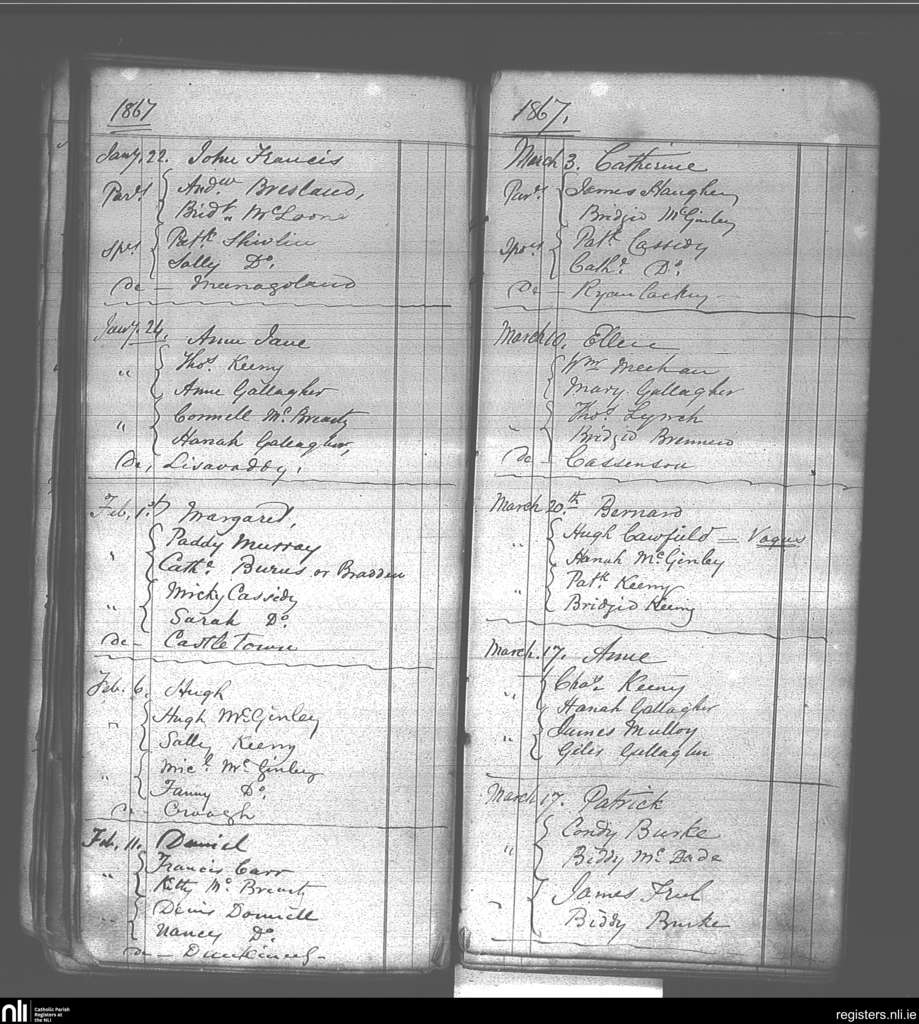 1867
Jany. 22. John Francis
Par.ts Andw. Bresland,
Bridt. McLoone
Sprs Pattk. Shivlin
Sally Do.
De — Meenagoland
Jany. 24. Anne Jane
" Thos. Keeny
Anne Gallagher
" Connell McBrearty
Hanah Gallagher,
De, Lisavaddy.
Feb. 1st Margaret,
" Paddy Murray
Cathe. Burns or Bradden
" Micky Cassidy
Sarah Do.
De — Castle Town
Feb. 6. Hugh
" Hugh McGinley
Sally Keeny
" Micl. McGinley
Fanny Do.
De — Croagh
Feb. 11. Daniel
" Francis Carr
Kitty McBrearty
" Denis Donnell
Nancy Do.
De — Dunkineel —
1867.
March 3. Catherine
Par.ts James Haughey
Bridgid McGinley
Spors Patk. Cassidy
Cathe. Do.
De — Ryan
March 10. Ellen
Wm. Meehan
Mary Gallagher
" Thos. Lynch
Bridgid
De —
March 20.th Bernard
" Hugh Cawfield — Vagus
Hanah McGinley
" Patk. Keeny
Bridgid Keeny
March. 17. Anne
" Chas. Keeny
Hanah Gallagher
" James Mulloy
Giles Gallagher
March 17. Patrick
" Condy Burke
Biddy McDade
" James
Biddy Burke
nli Catholic Parish
Registers at
the NLI
registers.nli.ie